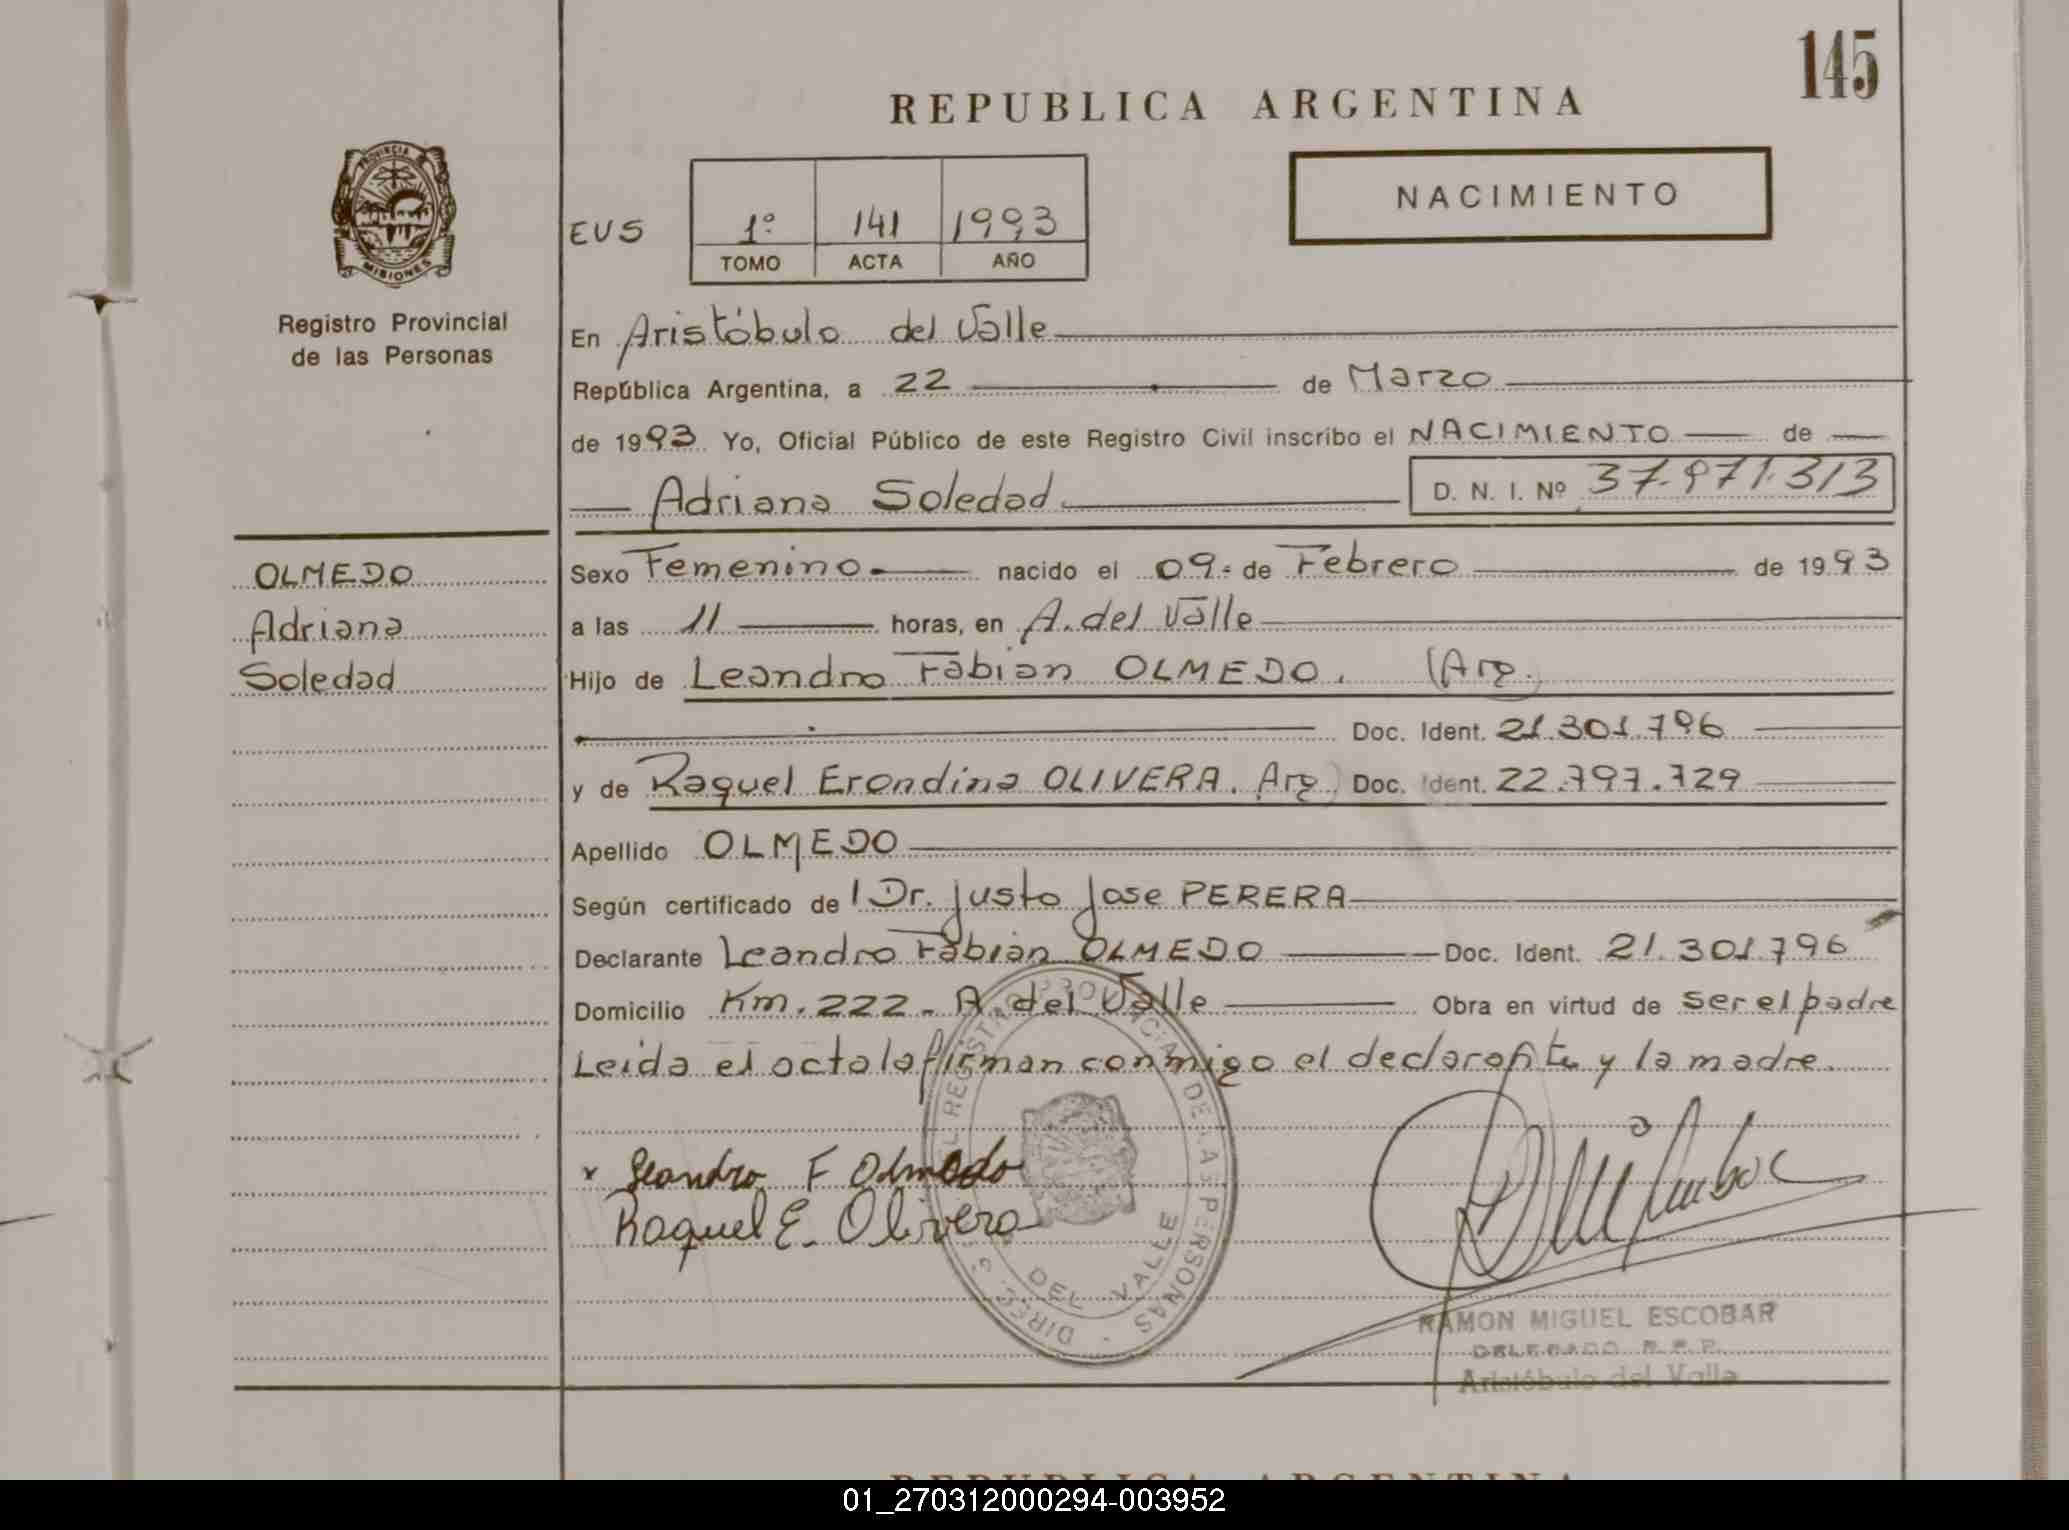 145
REPUBLICA ARGENTINA
PROVINCIA DE
MISIONES
Registro Provincial
de las Personas
EUS
1º 141 1993
TOMO ACTA AÑO
NACIMIENTO
En Aristóbulo del Valle
República Argentina, a 22 de Marzo
de 1993 Yo, Oficial Público de este Registro Civil inscribo el NACIMIENTO de
Adriana Soledad D. N. I. Nº 37.971.313
OLMEDO
Adriana
Soledad
Sexo Femenino nacido el 09 de Febrero de 1993
a las 11 horas, en A. del Valle
Hijo de Leandro Fabian OLMEDO. (Arg.)
Doc. Ident. 21.301.796
y de Raquel Erondina OLIVERA. Arg) Doc. Ident. 22.797.729
Apellido OLMEDO
Según certificado de Dr. Justo Jose PERERA
Declarante Leandro Fabián OLMEDO Doc. Ident. 21.301.796
Domicilio Km. 222 - A. del Valle Obra en virtud de ser el padre
Leida el acta la firman conmigo el declarante y la madre.
x Leandro F Olmedo
Raquel E. Olivera
REGISTRO PROVINCIAL DE LAS PERSONAS
DEL VALLE
RAMON MIGUEL ESCOBAR
DELEGADO R.P.P.
Aristóbulo del Valle
REPUBLICA ARGENTINA
01_270312000294-003952